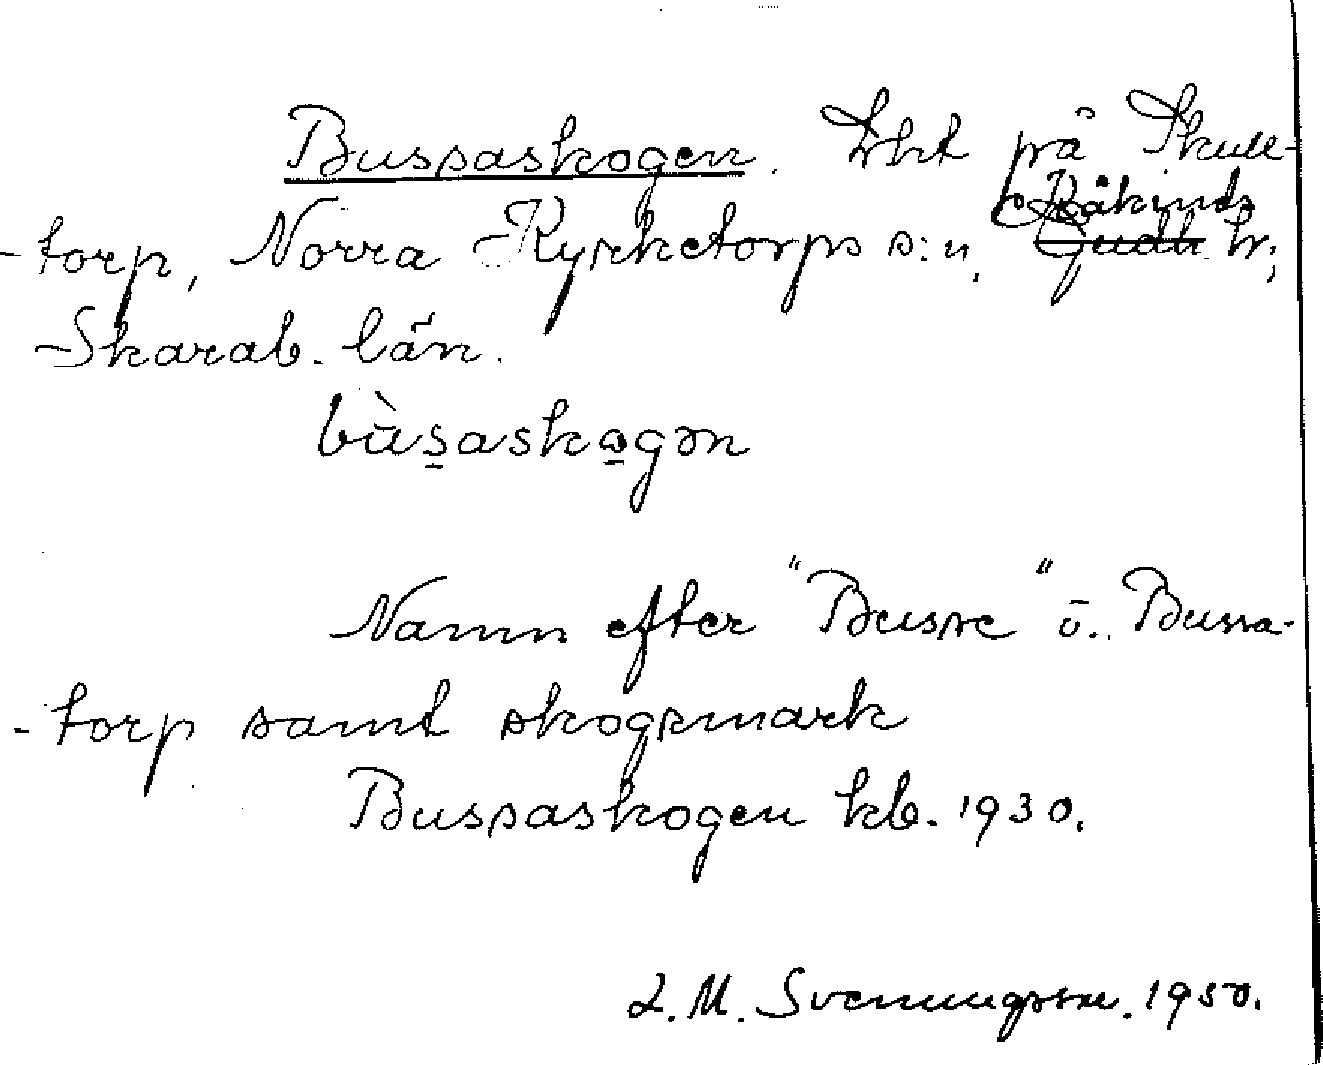 Bussaskogen. Lht på Skull-
-torp, Norra Kyrketorps s:n, Kåkinds hr;
Skarab. län.
bùsaskogən
Namn efter "Busse" o. Bussa-
-torp samt skogsmark
Bussaskogen kb. 1930.
L.M. Svenungsson. 1950.